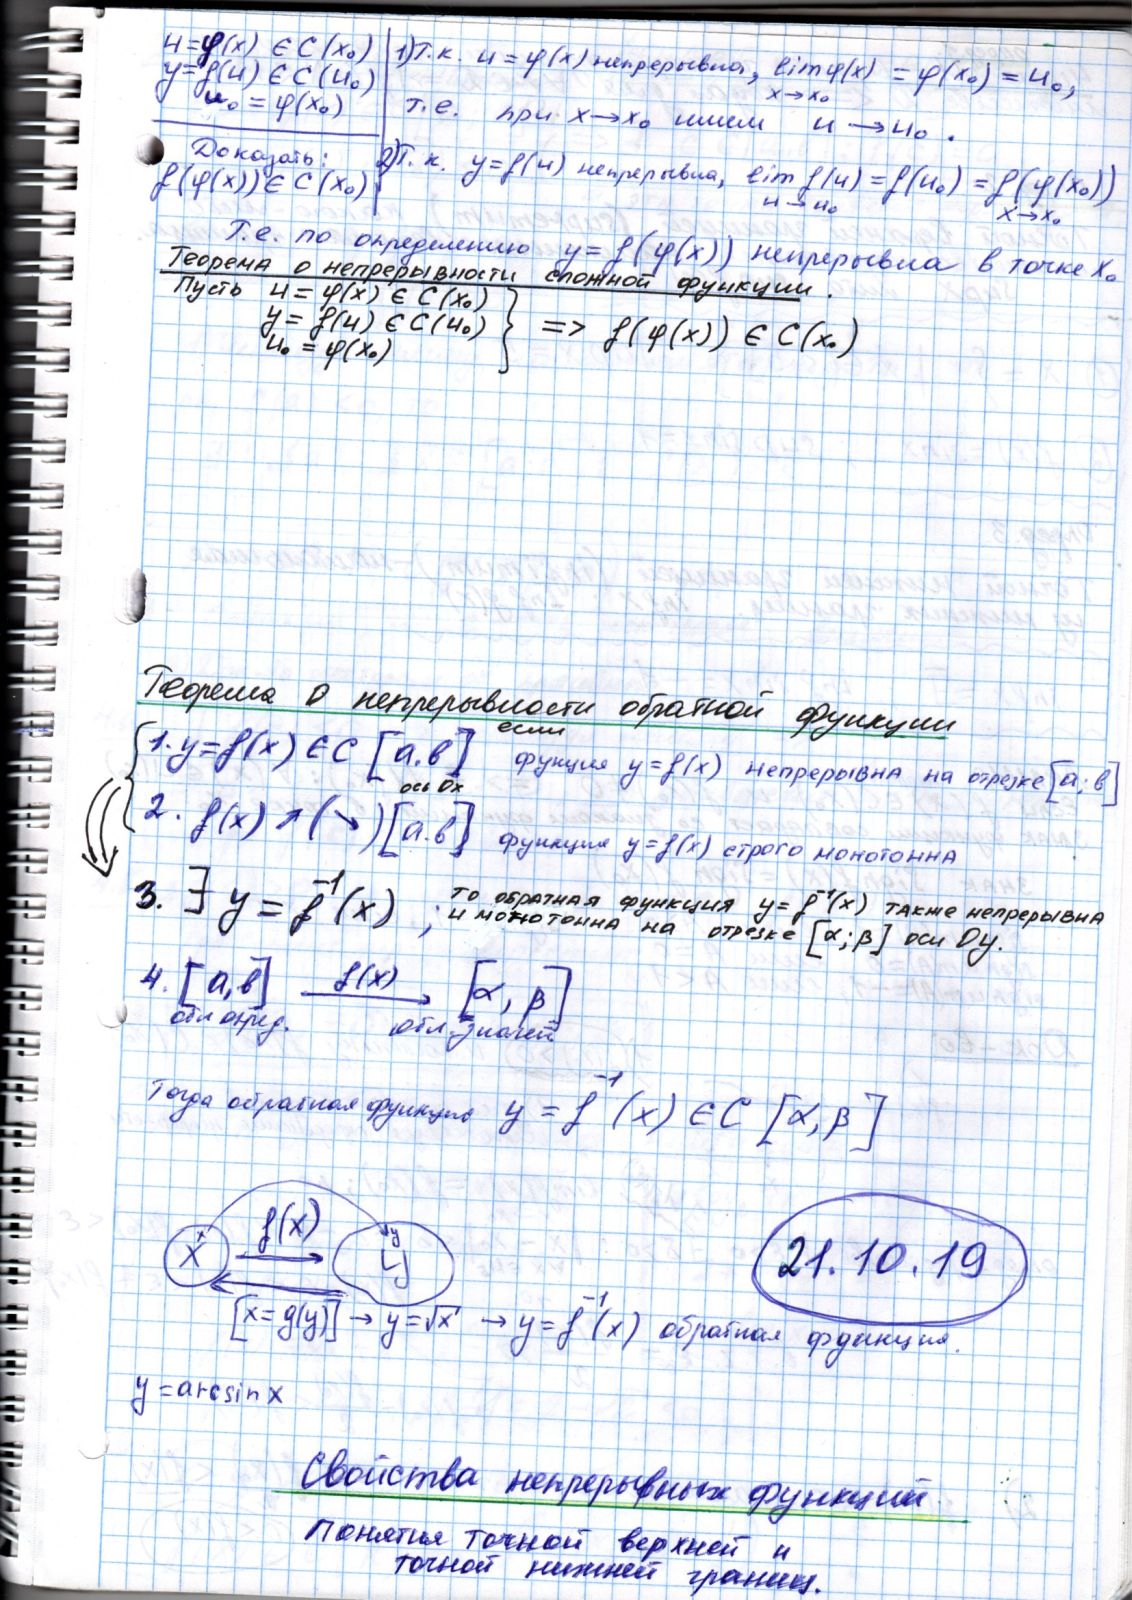 u = φ(x) ∈ C(x₀)
y = f(u) ∈ C(u₀)
u₀ = φ(x₀)
Доказать:
f(φ(x)) ∈ C(x₀)
1) Т.к. u = φ(x) непрерывна, lim φ(x) = φ(x₀) = u₀,
x→x₀
т.е. при x→x₀ имеем u → u₀.
2) Т.к. y = f(u) непрерывна, lim f(u) = f(u₀) = f(φ(x₀))
u→u₀ x→x₀
Т.е. по определению y = f(φ(x)) непрерывна в точке x₀
Теорема о непрерывности сложной функции.
Пусть u = φ(x) ∈ C(x₀)
y = f(u) ∈ C(u₀) } => f(φ(x)) ∈ C(x₀)
u₀ = φ(x₀)
Теорема о непрерывности обратной функции
если
1. y = f(x) ∈ C [a.b] функция y = f(x) непрерывна на отрезке [a; b]
ось Ox
2. f(x) ↗ (↘) [a.b] функция y = f(x) строго монотонна
3. ∃ y = f⁻¹(x) ; то обратная функция y = f⁻¹(x) также непрерывна
и монотонна на отрезке [α; β] оси Oy.
4. [a, b] f(x) → [α, β]
обл опред. обл. значен.
Тогда обратная функция y = f⁻¹(x) ∈ C [α, β]
f(x)
x y
X Y
21.10.19
[x = g(y)] → y = √x → y = f⁻¹(x) обратная функция.
y = arcsin x
Свойства непрерывных функций.
Понятия точной верхней и
точной нижней границ.